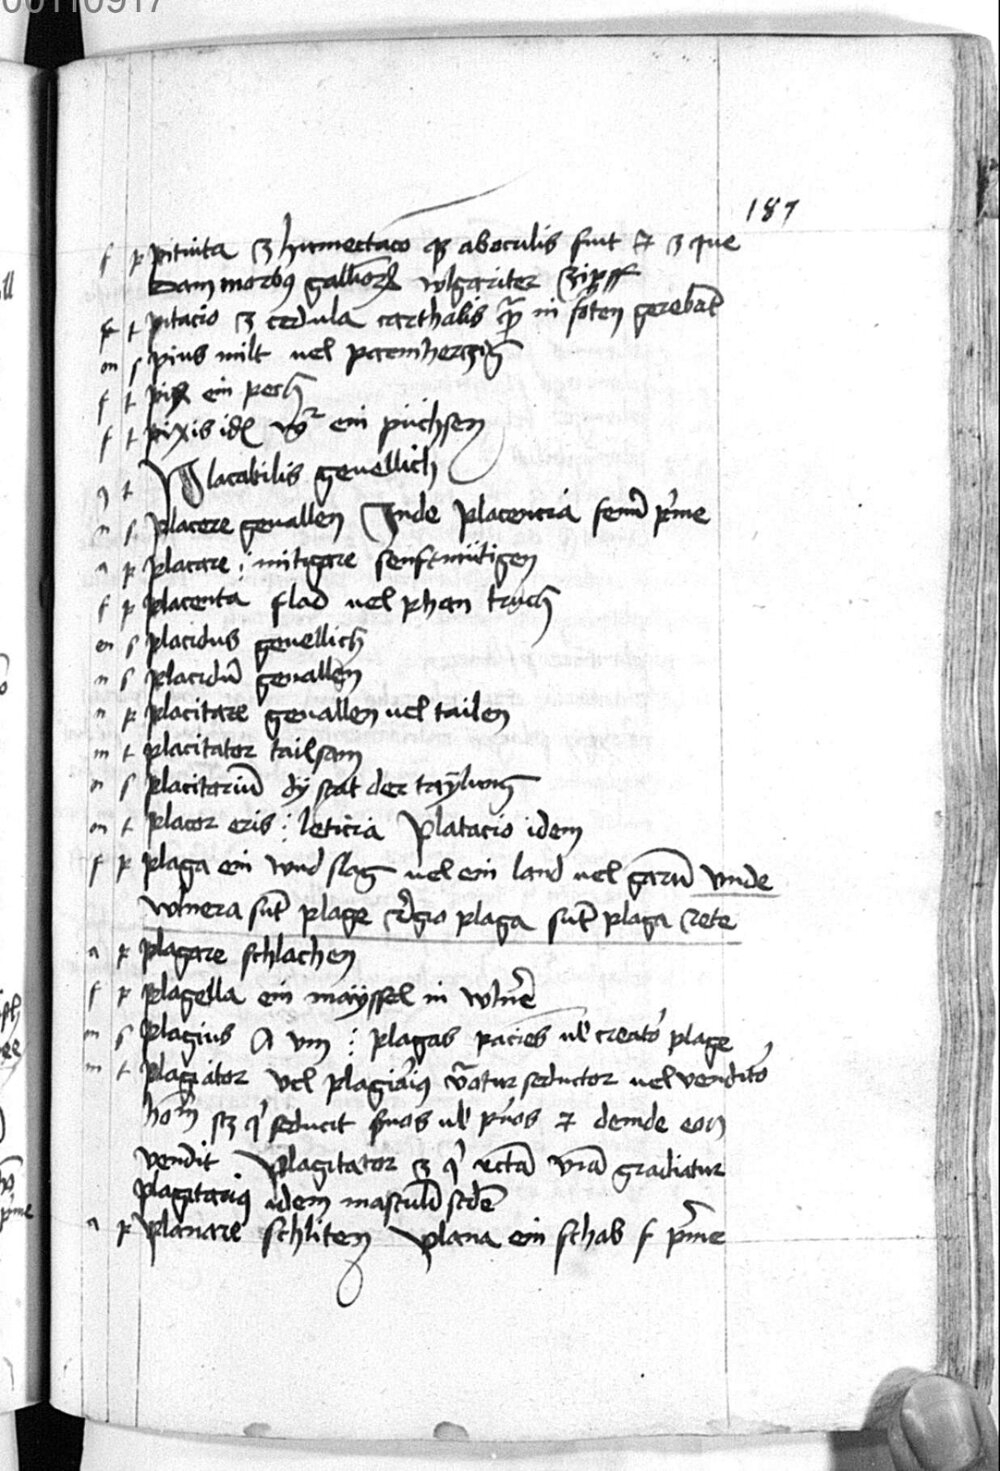 00110917
187
f p pituita ʒ humectaco q̄ aboculis fiut ⁊ ʒ que
dam morbus gallīorꝝ wlgariter Zipff
f t pitacio ʒ cedula carthalis in gerebat
m s pius milt vel parmherczig
f t pix ein pech
f t pixis idē ein püchsen
t Placabilis geuellich
n s placere geuallen Inde placencia femī pⁱme
a p placare i mitigare senfftmütigen
f p placenta flad vel phan
m s placidus geuellich
n s placidū geuallen
n p placitare geuallen vel tailen
m t placitator tailsam
n s placitariū dÿ stat der taÿlung
m t placor oris i leticia Platacio idem
f p plaga ein wnd slag vel ein land vel garnū vnde
wlnera sūt plage rēgio plaga sūt plaga rete
a p plagare schlachen
f p plagella ein maÿssel in wlnē
m s plagius A vm i plagas pacies ul creatō plage
m t plagiator vel plagiaīus vōatur seductor vel venditō
hoīm sʒ qⁱ seducit suos ul pⁱuos ⁊ deinde eos
vendit Plagitator ʒ qⁱ rectā viā gradiatur
plagitarius idem masculī scdē
a p planare schliten plana ein schab f pⁱme